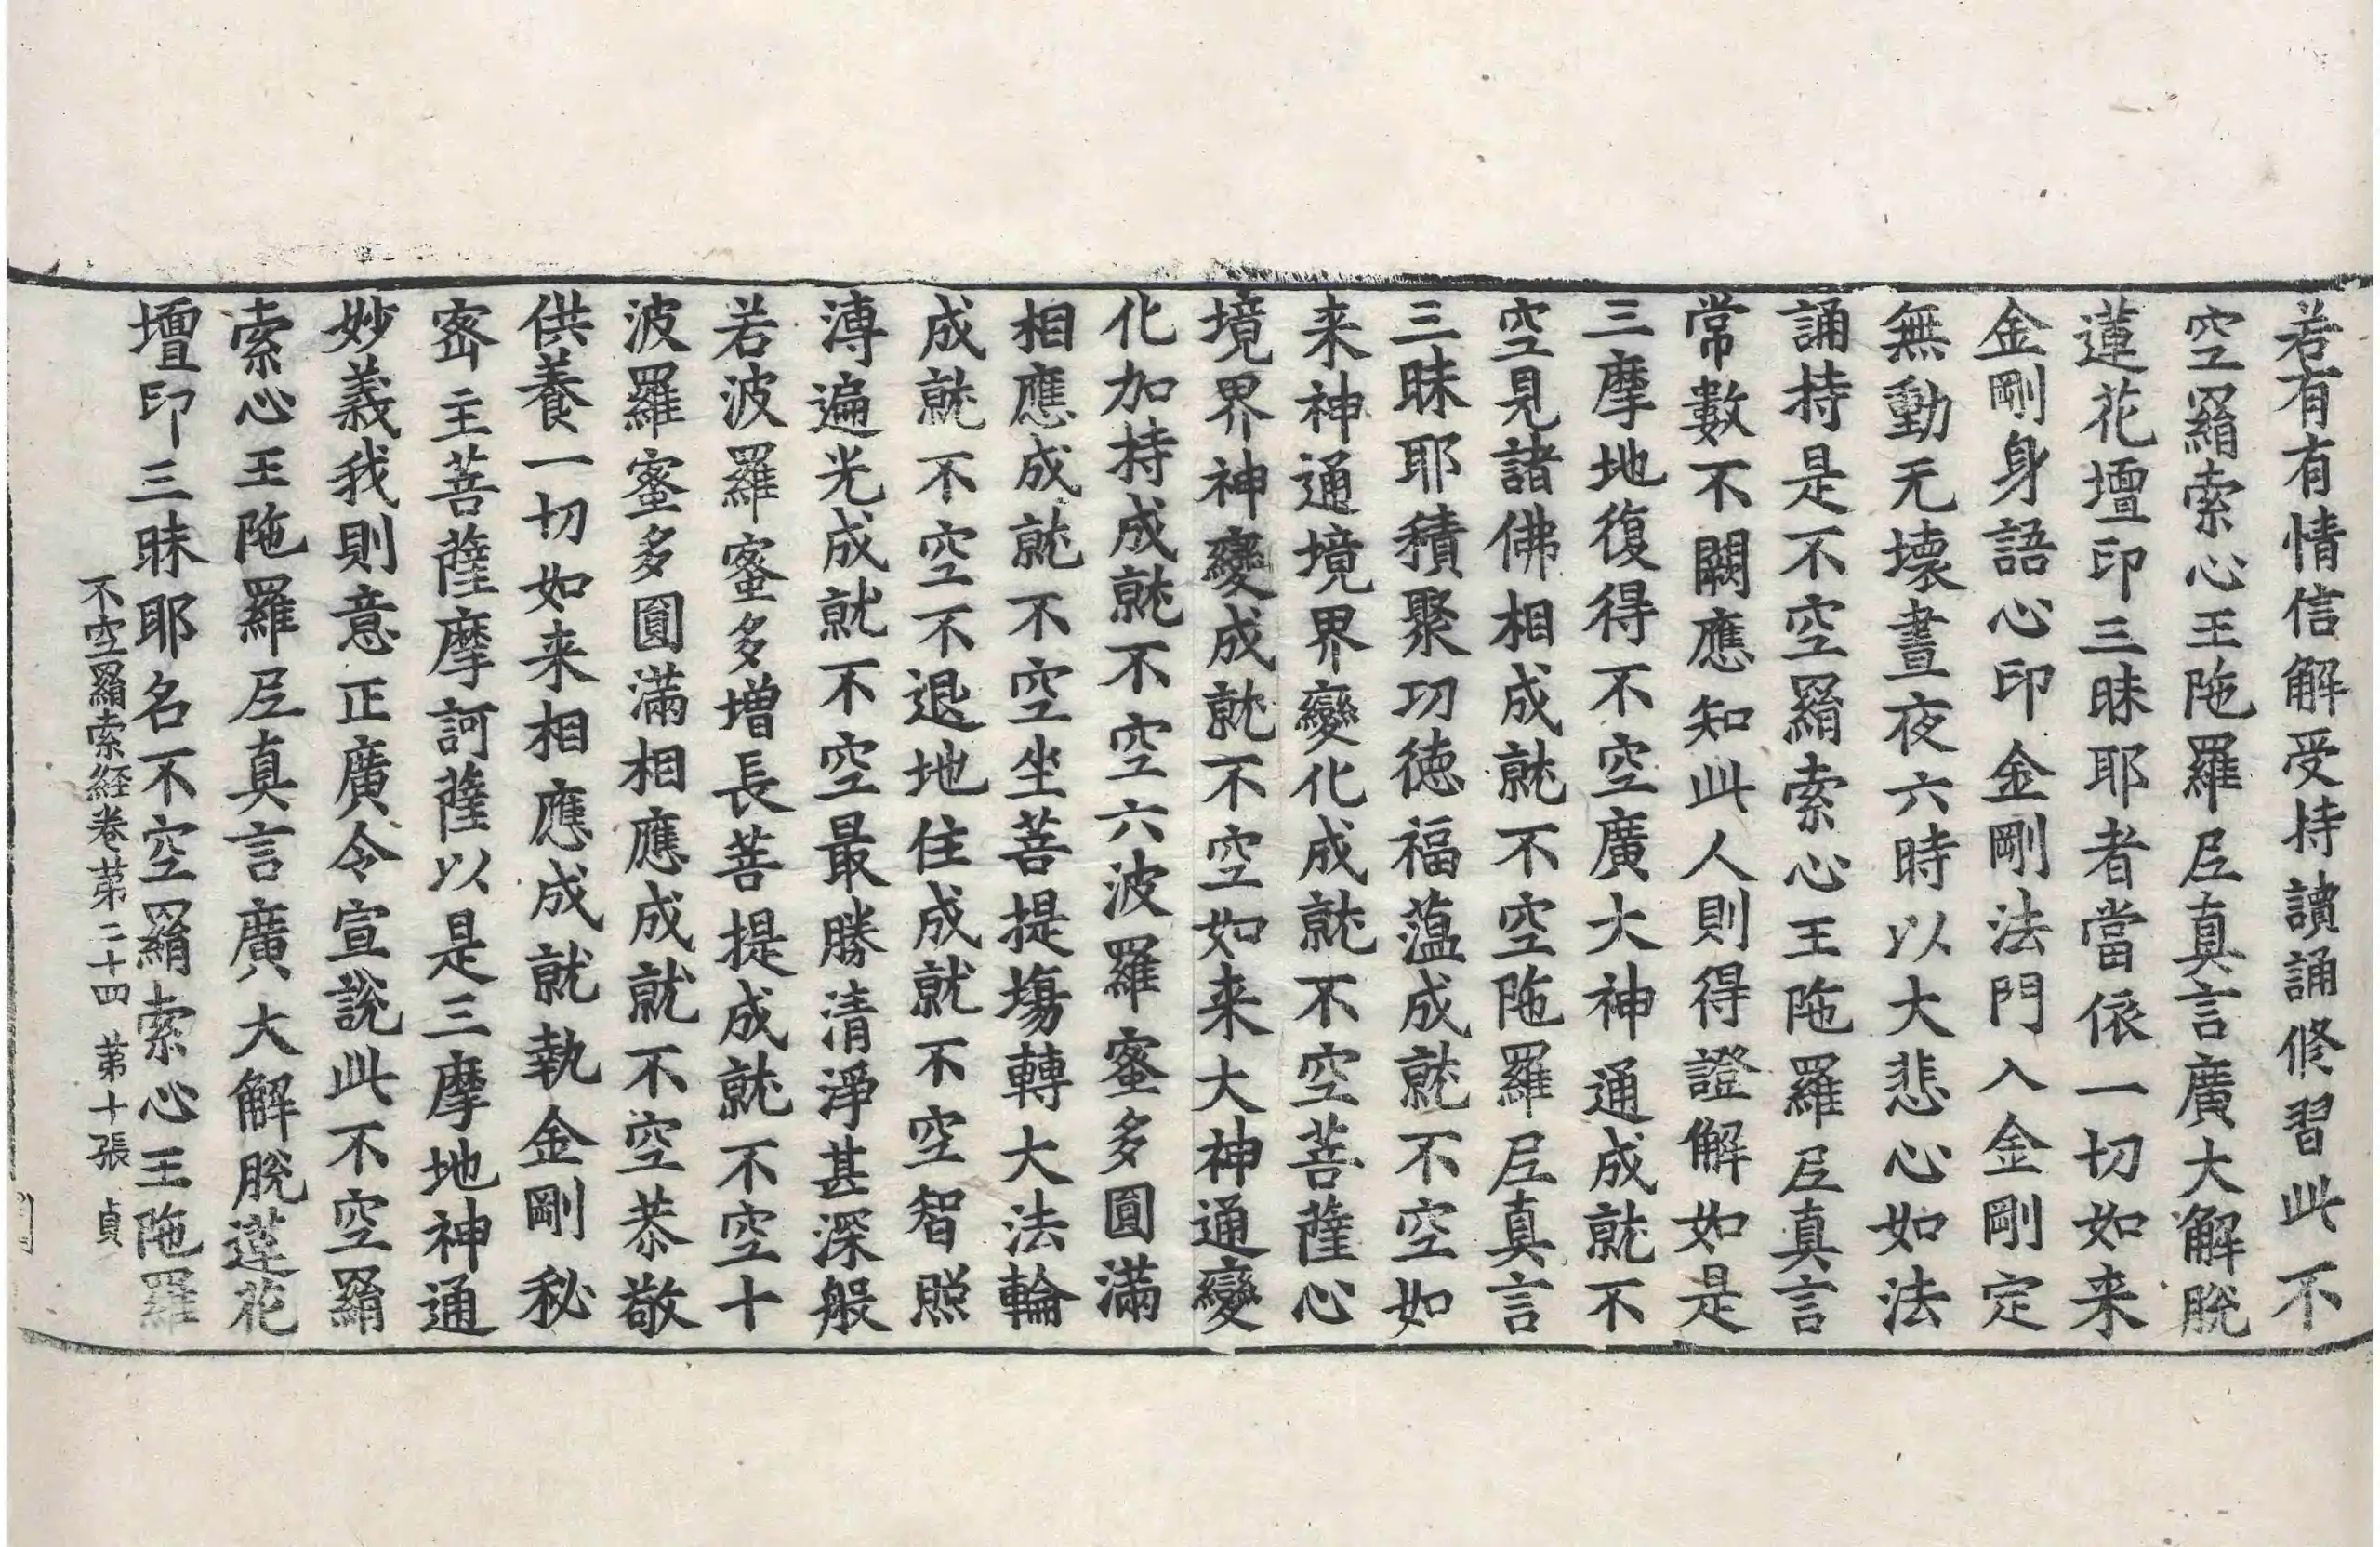 若有有情信解受持讀誦修習此不
空羂索心王陁羅𡰱真言廣大解脫
蓮花壇印三昧耶者當依一切如来
金剛身語心印金剛法門入金剛定
無動无壞晝夜六時以大悲心如法
誦持是不空羂索心王陁羅𡰱真言
常數不闕應知此人則得證解如是
三摩地復得不空廣大神通成就不
空見諸佛相成就不空陁羅𡰱真言
三昧耶積聚功徳福薀成就不空如
来神通境界變化成就不空菩薩心
境界神變成就不空如来大神通變
化加持成就不空六波羅蜜多圓滿
相應成就不空坐菩提塲轉大法輪
成就不空不退地住成就不空智照
溥遍光成就不空最勝清淨甚深般
若波羅蜜多增長菩提成就不空十
波羅蜜多圓滿相應成就不空恭敬
供養一切如来相應成就執金剛秘
密主菩薩摩訶薩以是三摩地神通
妙義我則意正廣令宣說此不空羂
索心王陁羅𡰱真言廣大解脫蓮花
壇印三昧耶名不空羂索心王陁羅
不空羂索経卷苐二十四 苐十張 貞